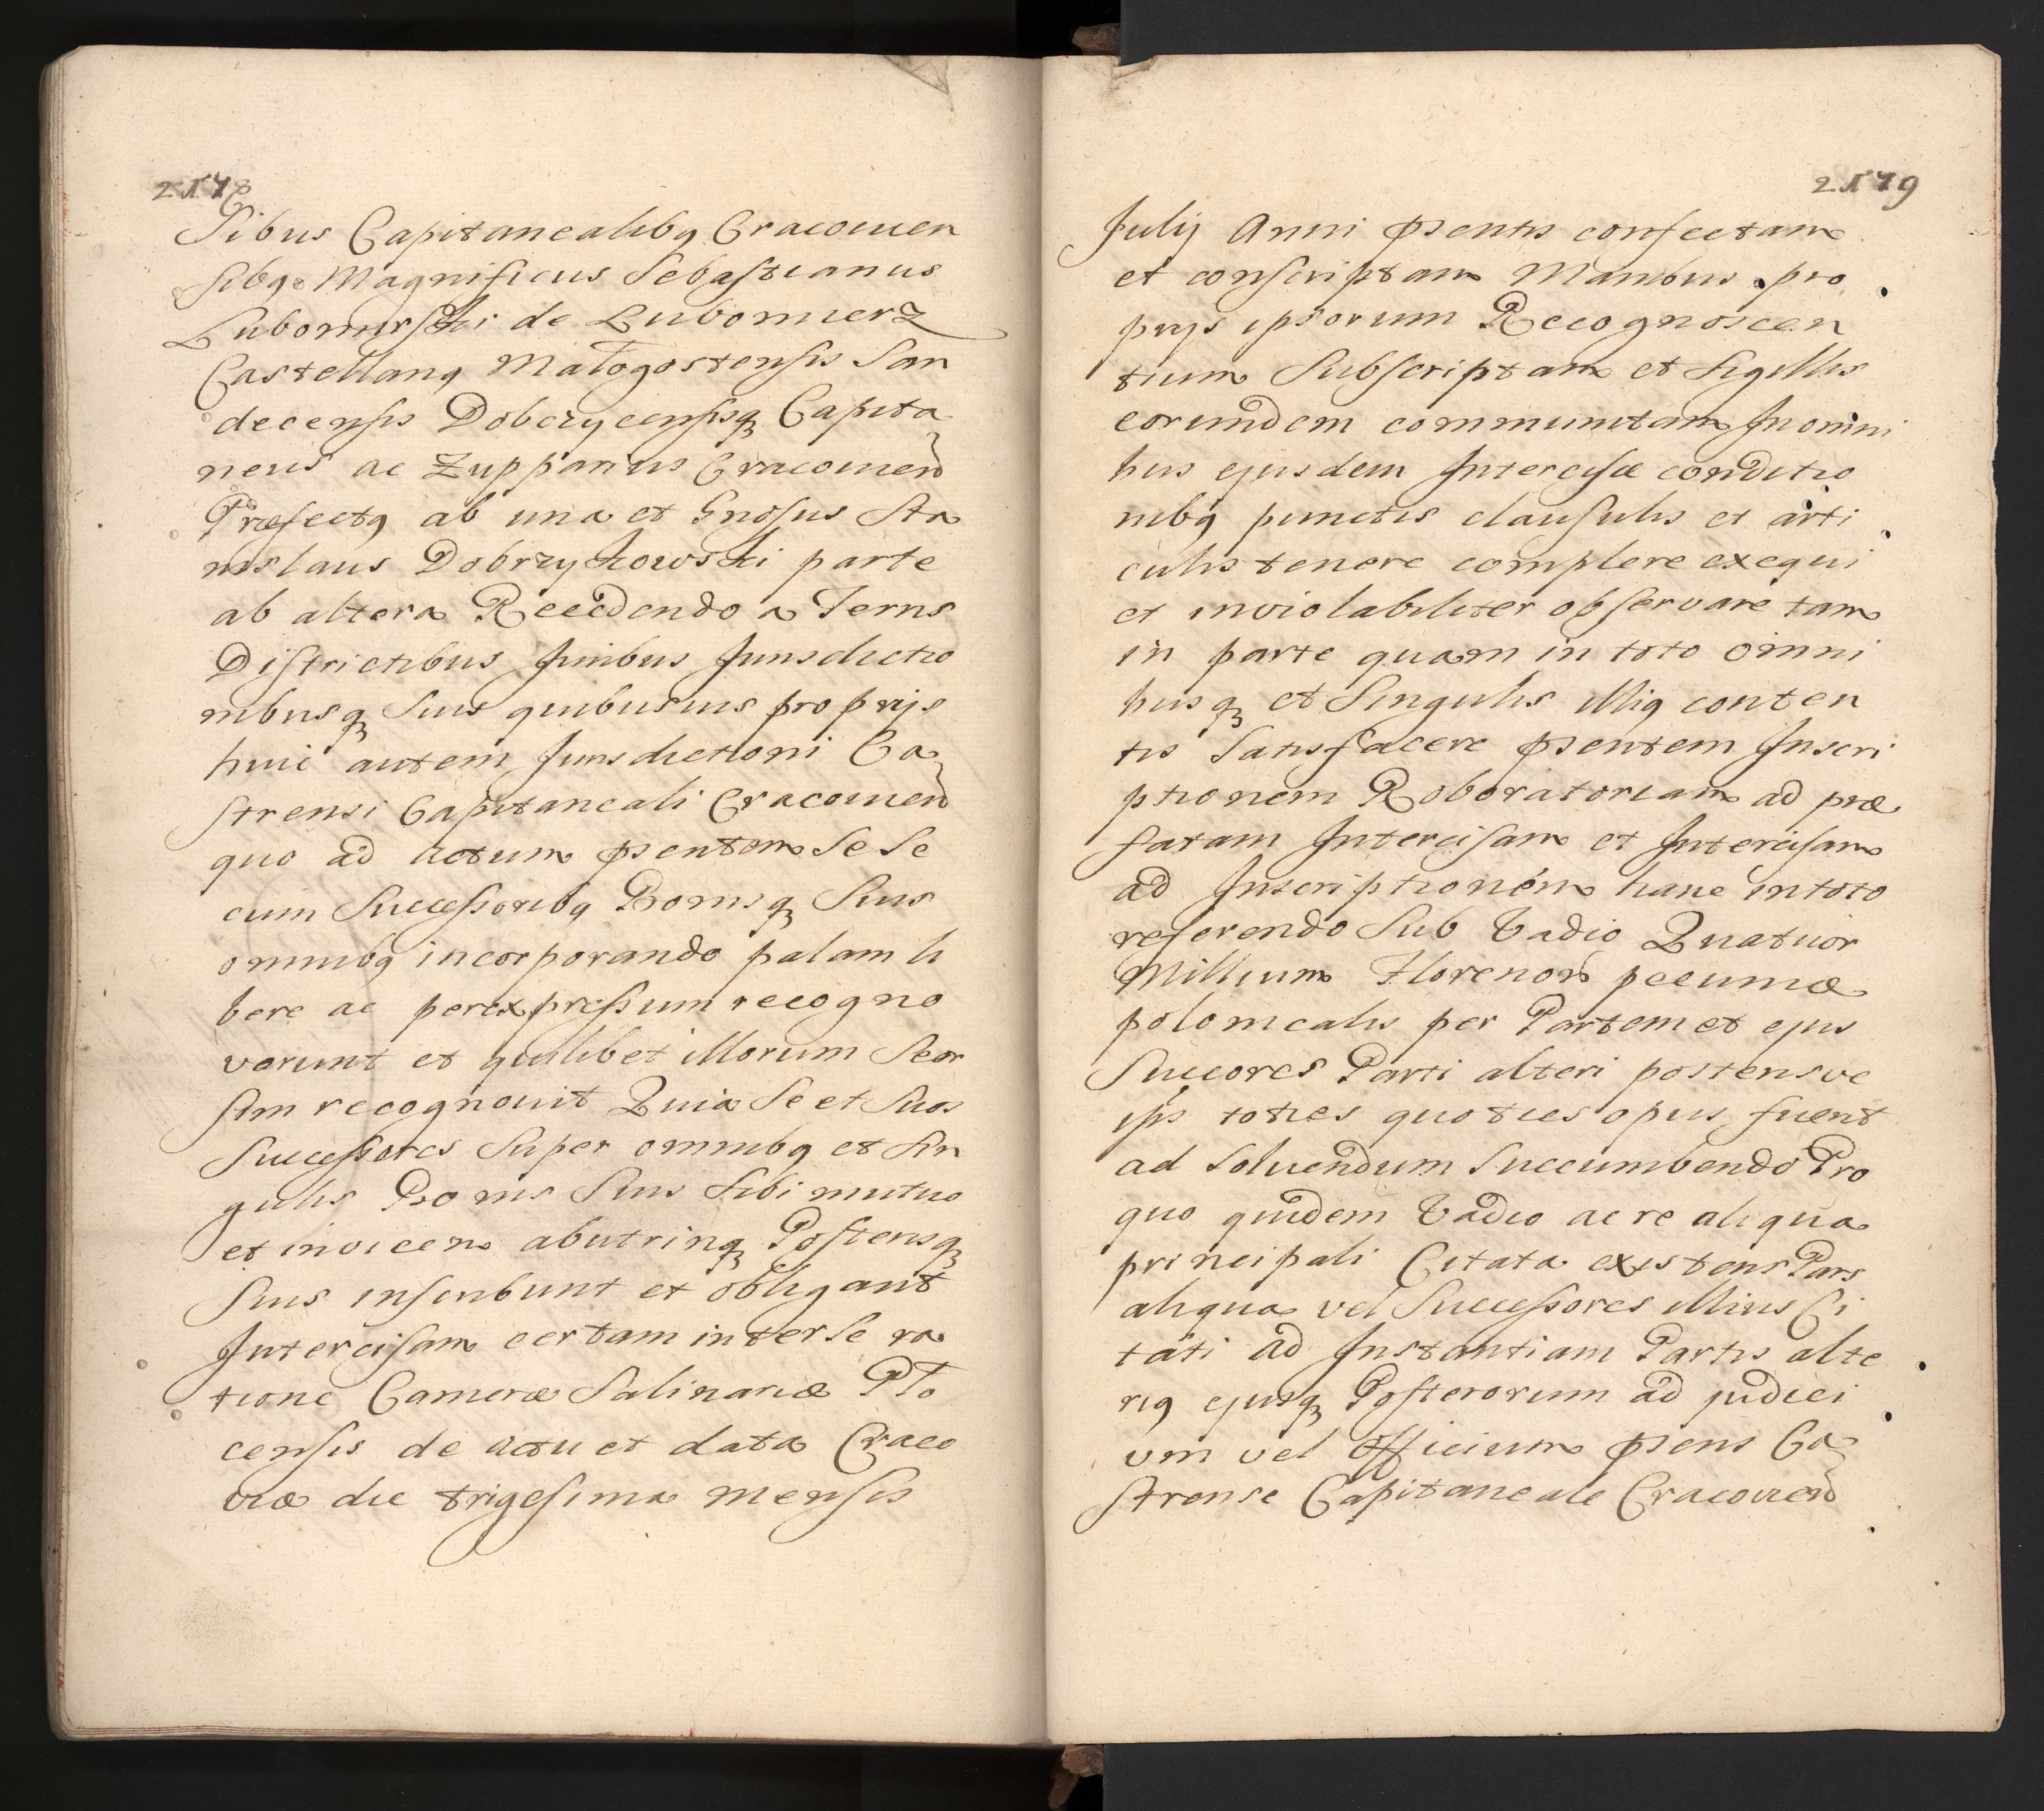 2178
sibus Capitanealibq Cracouien
sibq Magnificus Sebastianus
Lubomirski de Lubomierz
Castellanq Małogostensis San
decensis Dobczycensisq Capita
neus ac Zupparius Cracouien
Præfectq ab una et Gnosus Sta
nislaus Dobrzykowski parte
ab altera Recedendo a Terris
Districtibus Juribus Jurisdictio
nibusq suis quibusuis proprijs
huic autem Jurisdictioni Ca
strensi Capitaneali Cracouien
quo ad Actum psentem se se
cum Successoribq Bonisq suis
omnibq incorporando palam li
bere ac per expressum recogno
verunt et quilibet illorum Seor
sim recognouit Quia se et suos
Successores super omnibq et sin
gulis Bonis suis sibi mutuo
et invicem ab utrinq Posterisq
suis inscribunt et obligant
Intercisam certam inter se ra
tione Cameræ Salinariæ Plo
censis de actu et data Craco
uiæ die trigesima mensis
2179
Julij Anni psentis confectam
et conscriptam Manibus pro
prijs ipsorum Recognoscen
tium Subscriptam et Sigillis
eorundem communitam In omni
bus ejusdem Intercisæ conditio
nibq punctis clausulis et arti
culis tenore complere exequi
et inviolabiliter observare tam
in parte quam in toto omni
busq et Singulis illiq conten
tis Satisfacere psentem Inscri
ptionem Roboratoriam ad præ
fatam Intercisam et Intercisam
ad Inscriptionem hanc in toto
referendo Sub Vadio Quatuor
Millium Florenor pecuniæ
polonicalis per Partem et ejus
Succores Parti alteri posterisve
ips toties quoties opus fuerit
ad Soluendum Succumbendo Pro
quo quidem Vadio ac re aliqua
principali Citata existens Pars
aliqua vel Successores illius Ci
tati ad Instantiam Partis alte
riq ejusq Posterorum ad judici
um vel Officium psens Ca
strense Capitaneale Cracouien